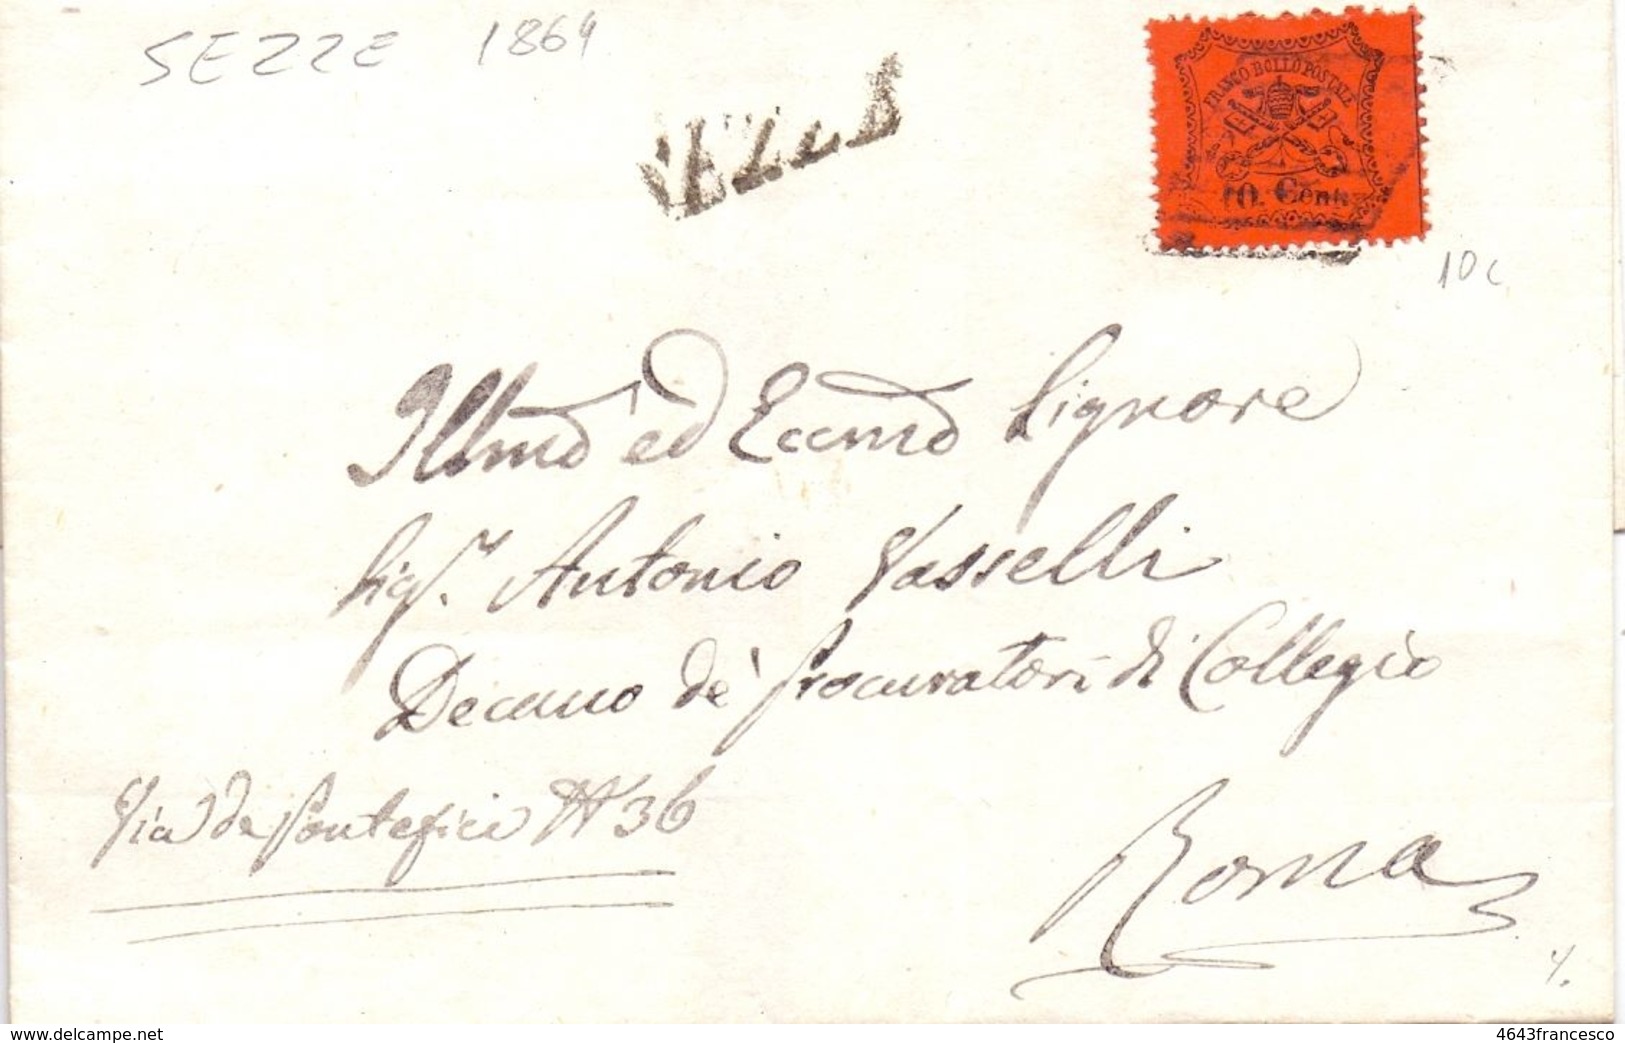 SEZZE 1869
FRANCO BOLLO POSTALE
10. Cent.
10 c
Illmo ed Eccmo Signore
Sigr. Antonio Vasselli
Decano de' Procuratori di Collegio
Via de Pontefici N 36
Roma
www.delcampe.net
4643francesco